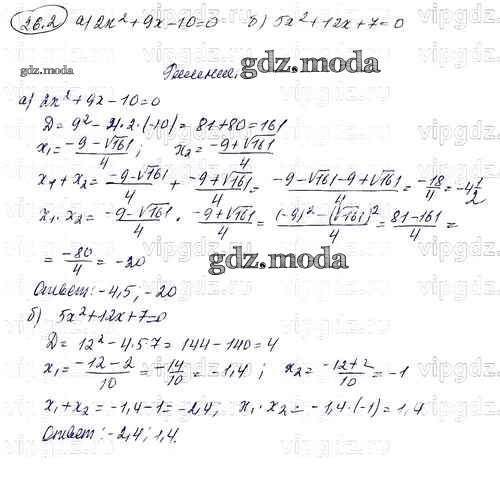 26.2 а) 2x²+9x-10=0 б) 5x²+12x+7=0
gdz.moda
Решение.
а) 2x²+9x-10=0
D=9²-4·2·(-10)=81+80=161
x₁=(-9-√161)/4; x₂=(-9+√161)/4
x₁+x₂=(-9-√161)/4+(-9+√161)/4=(-9-√161-9+√161)/4=-18/4=-4 1/2
x₁·x₂=(-9-√161)/4·(-9+√161)/4=((-9)²-(√161)²)/4=(81-161)/4=
=-80/4=-20
gdz.moda
Ответ: -4,5, -20
б) 5x²+12x+7=0
D=12²-4·5·7=144-140=4
x₁=(-12-2)/10=-14/10=-1,4; x₂=(-12+2)/10=-1
x₁+x₂=-1,4-1=-2,4; x₁·x₂=-1,4·(-1)=1,4.
Ответ: -2,4; 1,4.
vipgdz.com